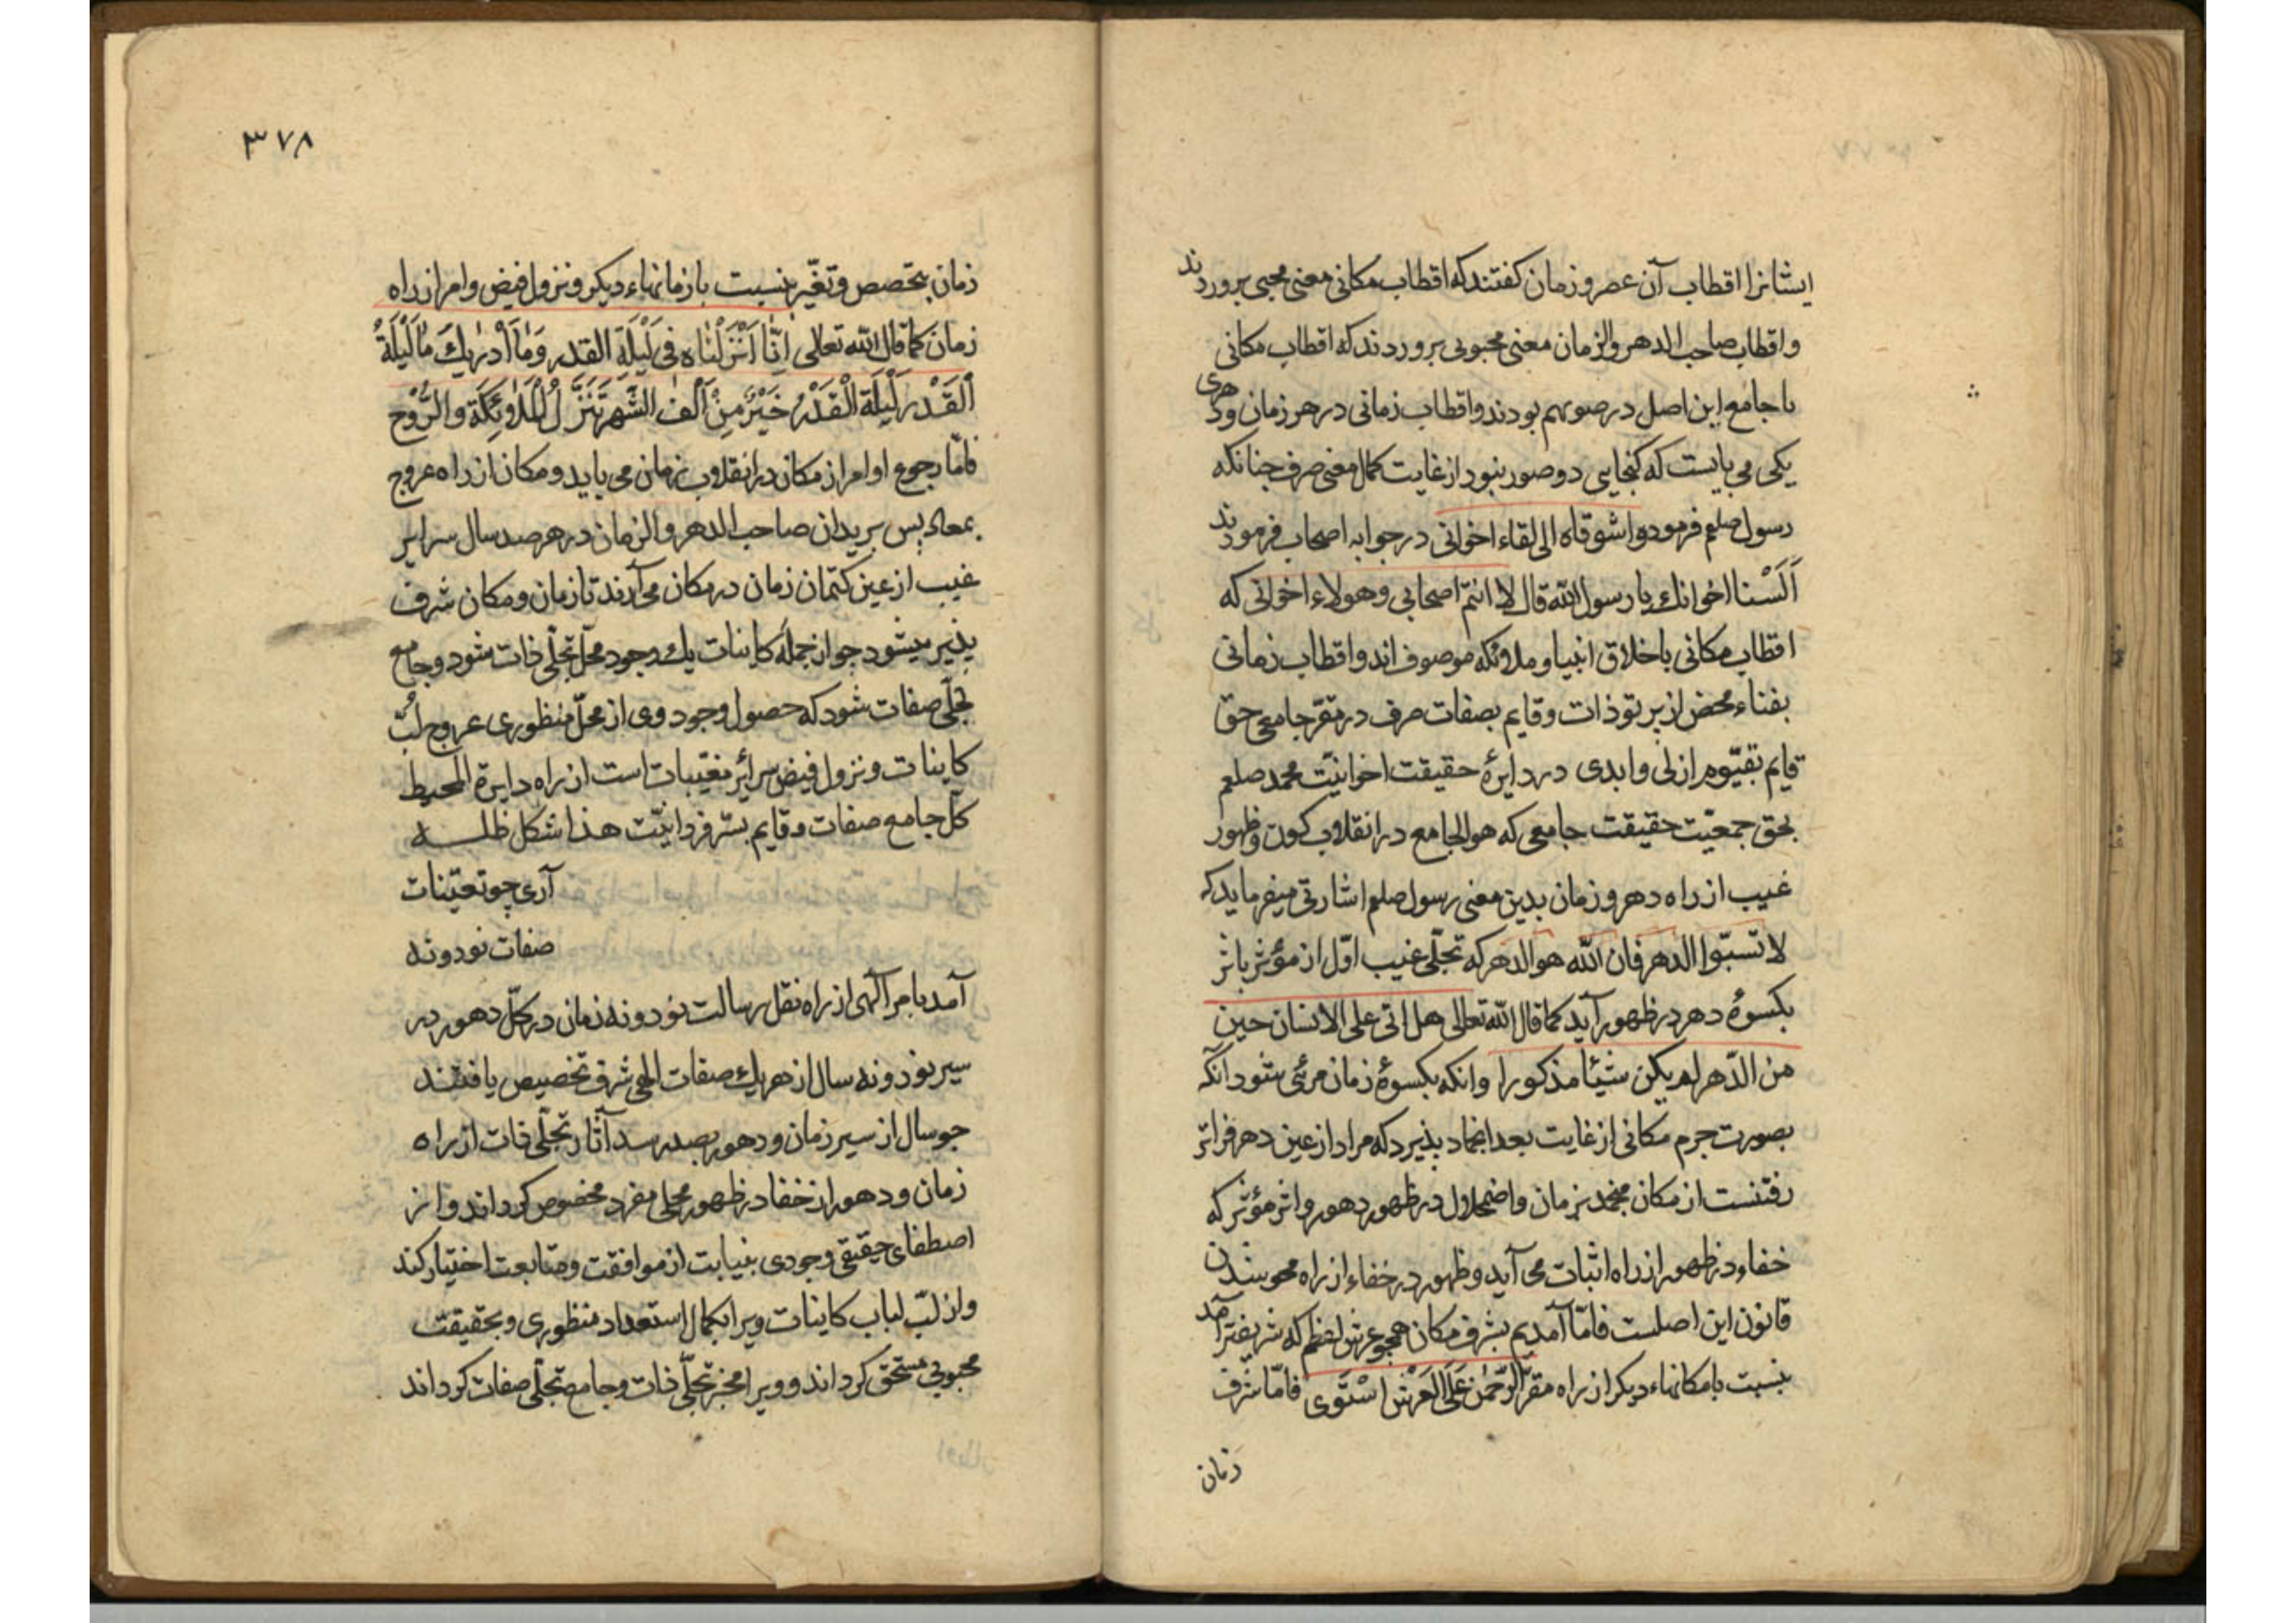 ایشانرا اقطاب آن عصر و زمان کفتند که اقطاب مکانی معنی محبی پروردند
و اقطاب صاحب الدهر والزمان معنی محبوبی پروردند که اقطاب مکانی
با جامع این اصل در صور بهم بودند و اقطاب زمانی در هر زمان و دهری
یکی می بایست که کنجایی دو صور نبود از غایت کمال معنی صرف چنانکه
رسول صلعم فرموده واشوقاه الی لقاء اخوانی در جواب اصحاب فرمودند
اَلَسْنا اخوانك یا رسول الله قال لا انتم اصحابی وهولاء اخوانی که
اقطاب مکانی باخلاق انبیا و ملائکه موصوف اند و اقطاب زمانی
بفناء محض از پرتو ذات و قایم بصفات صرف در مقرّ جامعی حق
قایم بقیّوم ازلی و ابدی در دایرهٔ حقیقت اخوانیّت محمد صلعم
بحق جمعیّت حقیقت جامعی که هوالجامع در انقلاب کون و ظهور
غیب از راه دهر و زمان بدین معنی رسول صلعم اشارتی میفرماید که
لا تسبّوا الدهر فان الله هوالدهر که تجلّی غیب اوّل از مؤثر باثر
بکسوهٔ دهر در ظهور آید کما قال الله تعالی هل اتی علی الانسان حین
من الدّهر لم یکن شیئا مذکورا وانکه بکسوهٔ زمان مرئی شود آنکه
بصورت جرم مکانی از غایت بعد انجماد پذیرد که مراد از عین دهر فراتر
رفتنست از مکان منجمد بزمان و اضمحلال در ظهور دهور و اثر مؤثر که
خفاء در ظهور از راه اثبات می آید و ظهور در خفاء از راه محو شدن
قانون این اصلست فامّا آمدیم بشرف مکان همجو عرش اعظم که شریفتر آمد
بنسبت با مکانهاء دیکر از راه مقرّ الرّحمٰن عَلَی الْعَرْش اسْتَوی فامّا شرف
زمان
۳۷۸
زمان بتخصص و تغیّر بنسبت با زمانهاء دیکر و نزول فیض و امر از راه
زمان کما قال الله تعالی اِنّا اَنْزَلْناه فی لَیْلَةِ القدر وَما اَدْریٰكَ مٰا لَیْلَةُ
الْقَدْر لَیْلَة الْقَدْر خَیْرٌ مِنْ اَلْف الشّهر تَنَزَّلُ الْمَلاٰئِکَة والرُّوْح
فامّا رجوع اوامر از مکان در انقلاب بزمان می باید و مکان از راه عروج
بمعاد پس بریدان صاحب الدهر والزمان در هر صد سال سرایر
غیب از عین کتمان زمان در مکان می آرند تا زمان و مکان شرف
پذیر میشود جو از جملهٔ کاینات یك وجود محلّ تجلّی ذات شود و جامع
تجلّی صفات شود که حصول وجود وی از محلّ منظوری عروج لبّ
کاینات و نزول فیض سرائر مغیّبات است از راه دایرة المحیط
کلّ جامع صفات و قایم بسّر فردانیّت هذا شکل ظله
آری چو تعیّنات
صفات نود و نه
آمد بامر آلهی از راه نقل رسالت نود و نه زمان در کلّ دهور در
سیر نود و نه سال از هر یك صفات الهی شرف تخصیص یافتند
جو سال از سیر زمان و دهور بصد رسد آثار تجلّی ذات از راه
زمان و دهور از خفا در ظهور محلی مفرد مخصوص کرداند و از
اصطفای حقیقی وجودی بنیابت از موافقت و متابعت اختیار کند
و از لبّ لباب کاینات ویرا بکمال استعداد منظوری و بحقیقت
محبوبی مستحق کرداند و ویرا مخبر تجلّی ذات و جامع تجلّی صفات کرداند